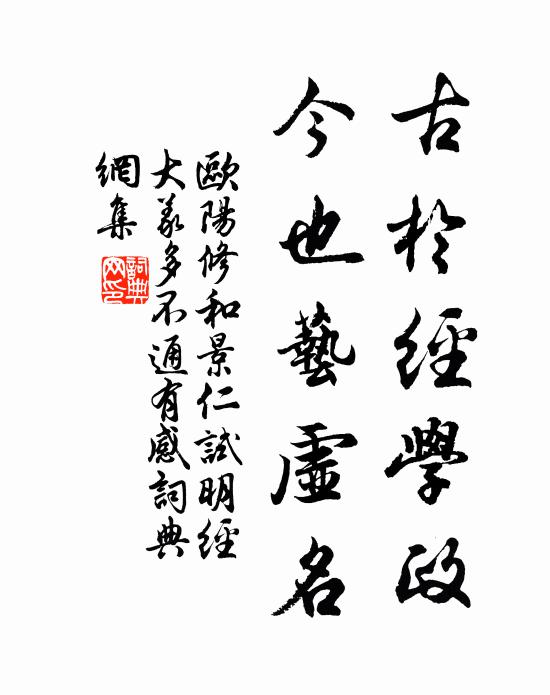 古於經學政
今也藝虛名
歐陽修和景仁試明經
大義多不通有感詞典
網集
詞典
網印